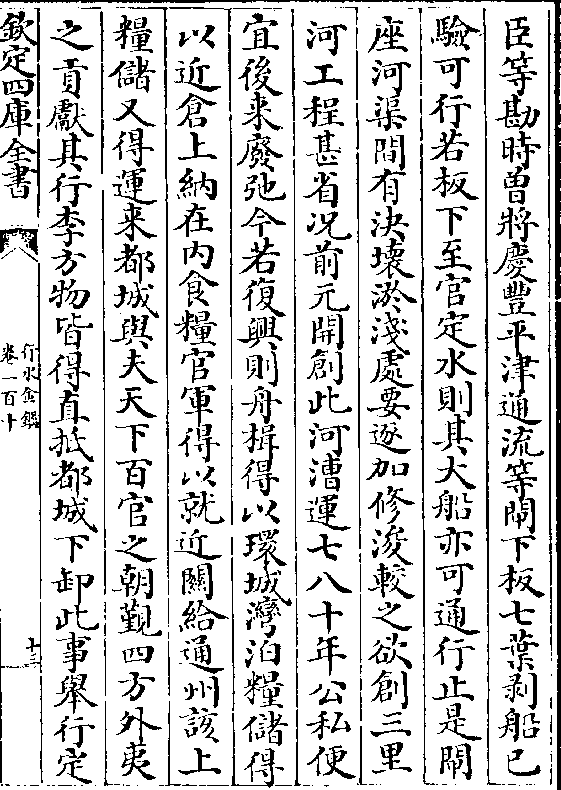 臣等勘時曽將慶豐平津通流等閘下板七葉剥船已
驗可行若板下至官定水則其大船亦可通行止是閘
座河渠間有决壊淤淺處要逐加修浚較之欲創三里
河工程甚省况前元開創此河漕運七八十年公私便
宜後来廢弛今若復興則舟楫得以環城灣泊糧儲得
以近倉上納在内食糧官軍得以就近闗給通州該上
糧儲又得運来都城與夫天下百官之朝覲四方外夷
之貢獻其行李方物皆得直抵都城下卸此事舉行定
欽定四庫全書
行水金鑑
卷一百十
十三